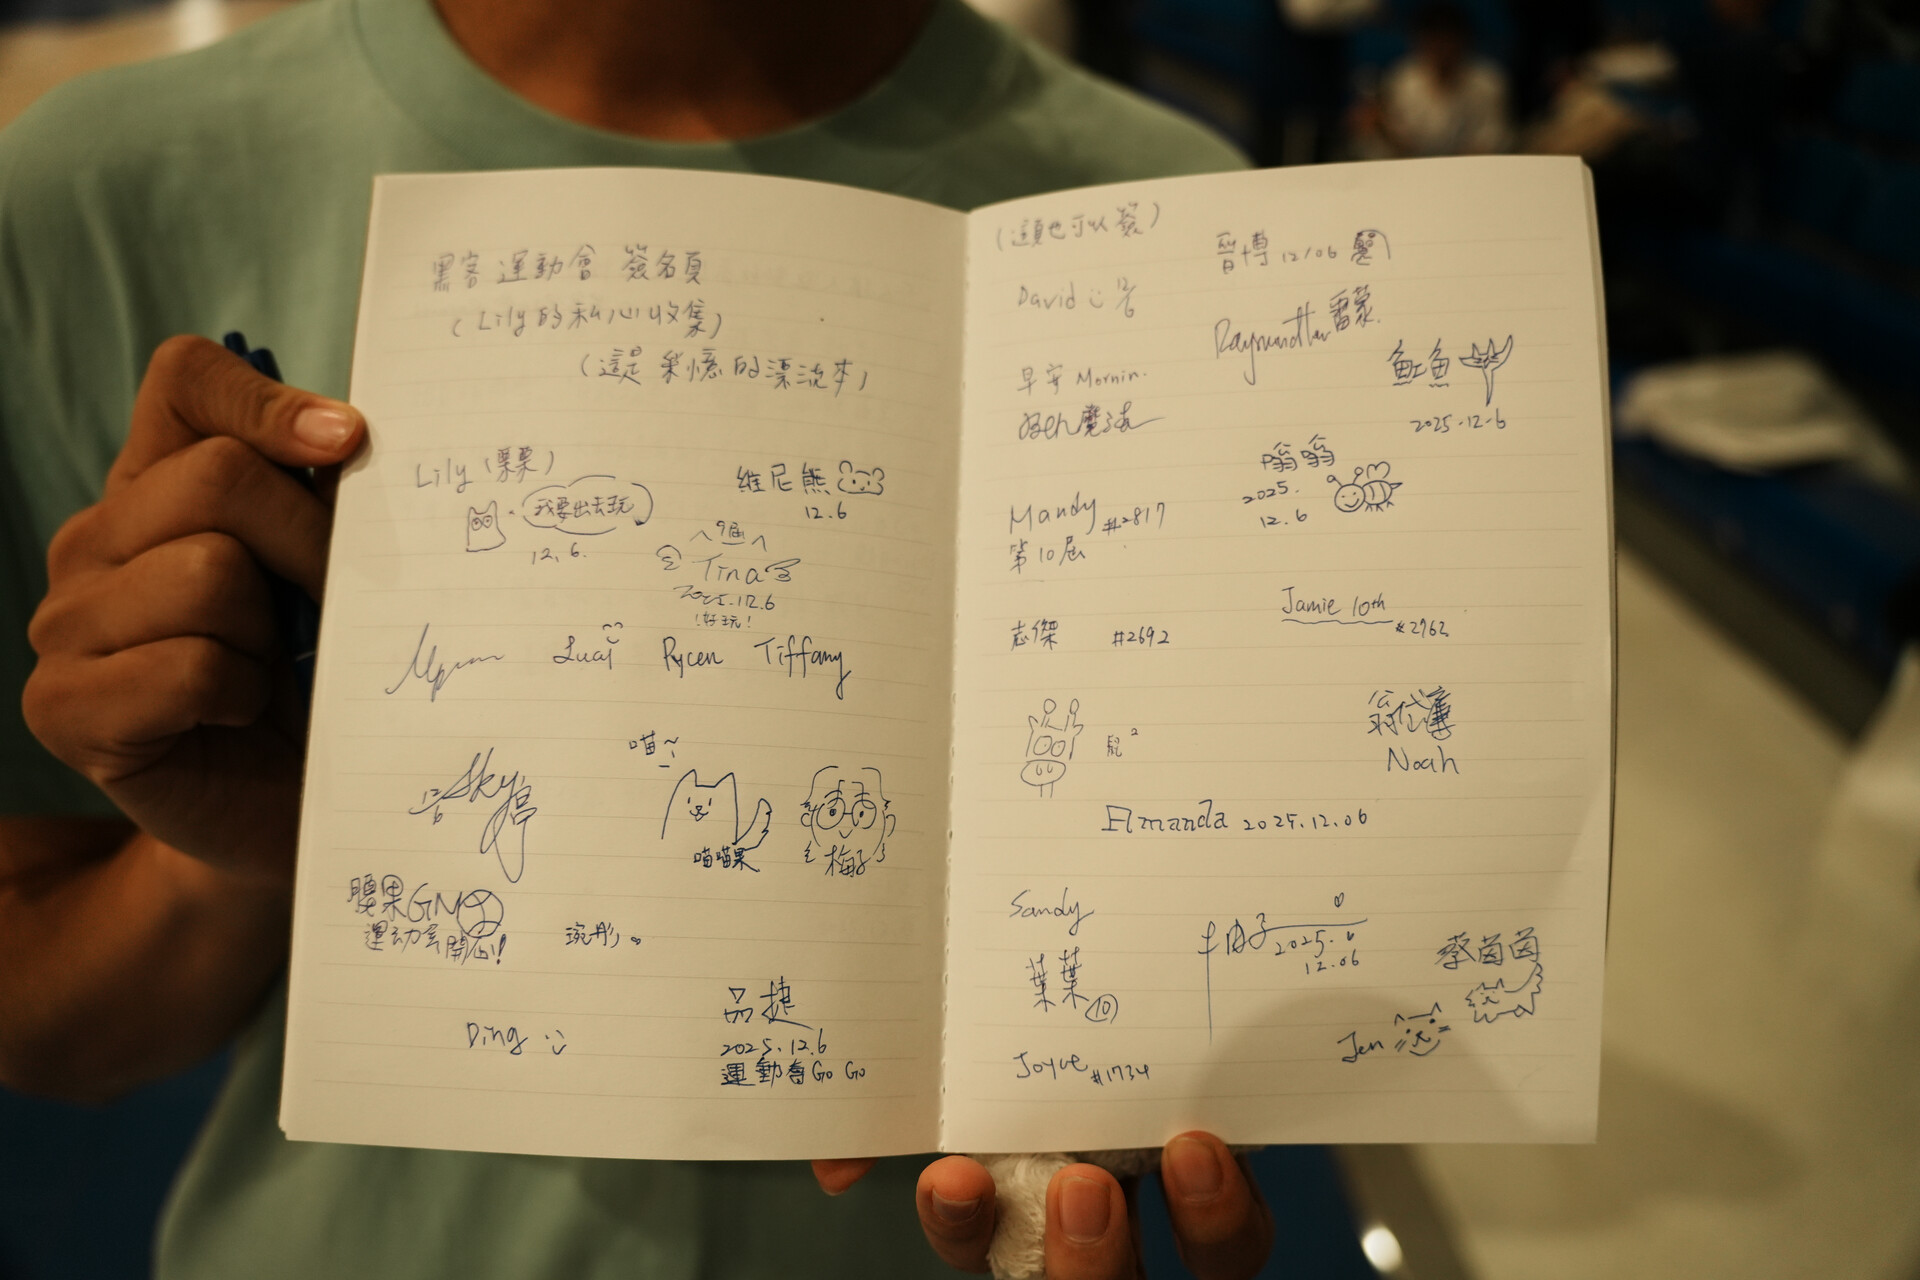 黑客運動會 簽名頁
(Lily的私心收集)
(這是 集憶的漂流本)
Lily (栗栗)
我要出去玩
12.6.
維尼熊
12.6
9屆
Tina
2025.12.6
!好玩!
Pycen
Tiffany
12/6 Sky 停
喵~
喵喵果
梅子
腰果GN
運动会開心!
琬彤
Ding
品捷
2025.12.6
運動會 Go Go
(這頁也可以簽)
晉博 12/06
David 12/6
雷蒙
早安 Mornin.
魟魚
2025.12.6
Ben魔法
嗡嗡
2025.
12.6
Mandy #2817
第10屆
Jamie 10th
#2762
志傑 #2692
兒²
Noah
Amanda 2025.12.06
Sandy
2025.
12.06
葉葉 10
蔡茵茵
Jen
Joyce #1734